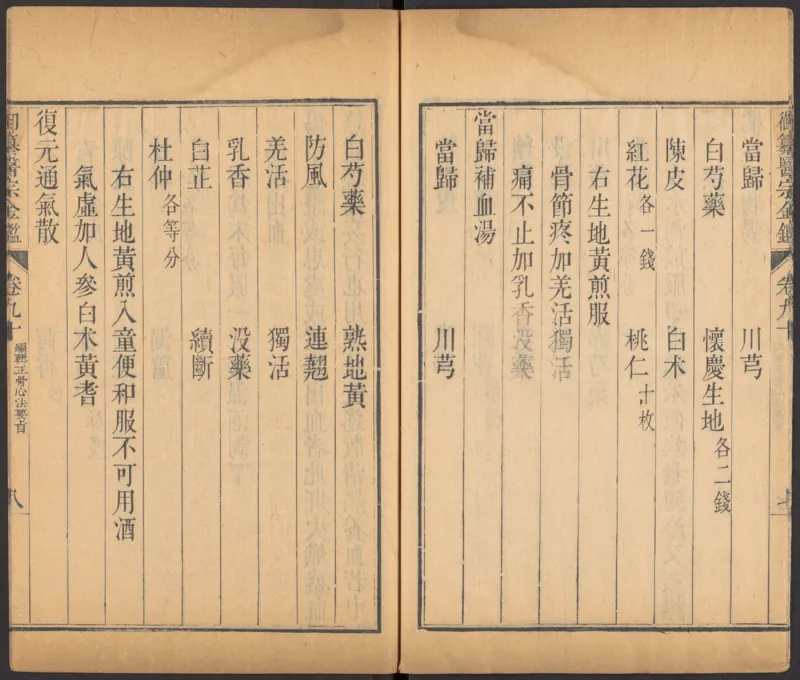 當歸 川芎
白芍藥 懷慶生地各二錢
陳皮 白术
紅花各一錢 桃仁十枚
右生地黃煎服
骨節疼加羌活獨活
痛不止加乳香没藥
當歸補血湯
當歸 川芎
白芍藥 熟地黃
防風 連翹
羌活 獨活
乳香 没藥
白芷 續斷
杜仲各等分
右生地黃煎入童便和服不可用酒
氣虛加人參白术黃耆
復元通氣散
御纂醫宗金鑑 卷九十 編輯正骨心法要旨 八